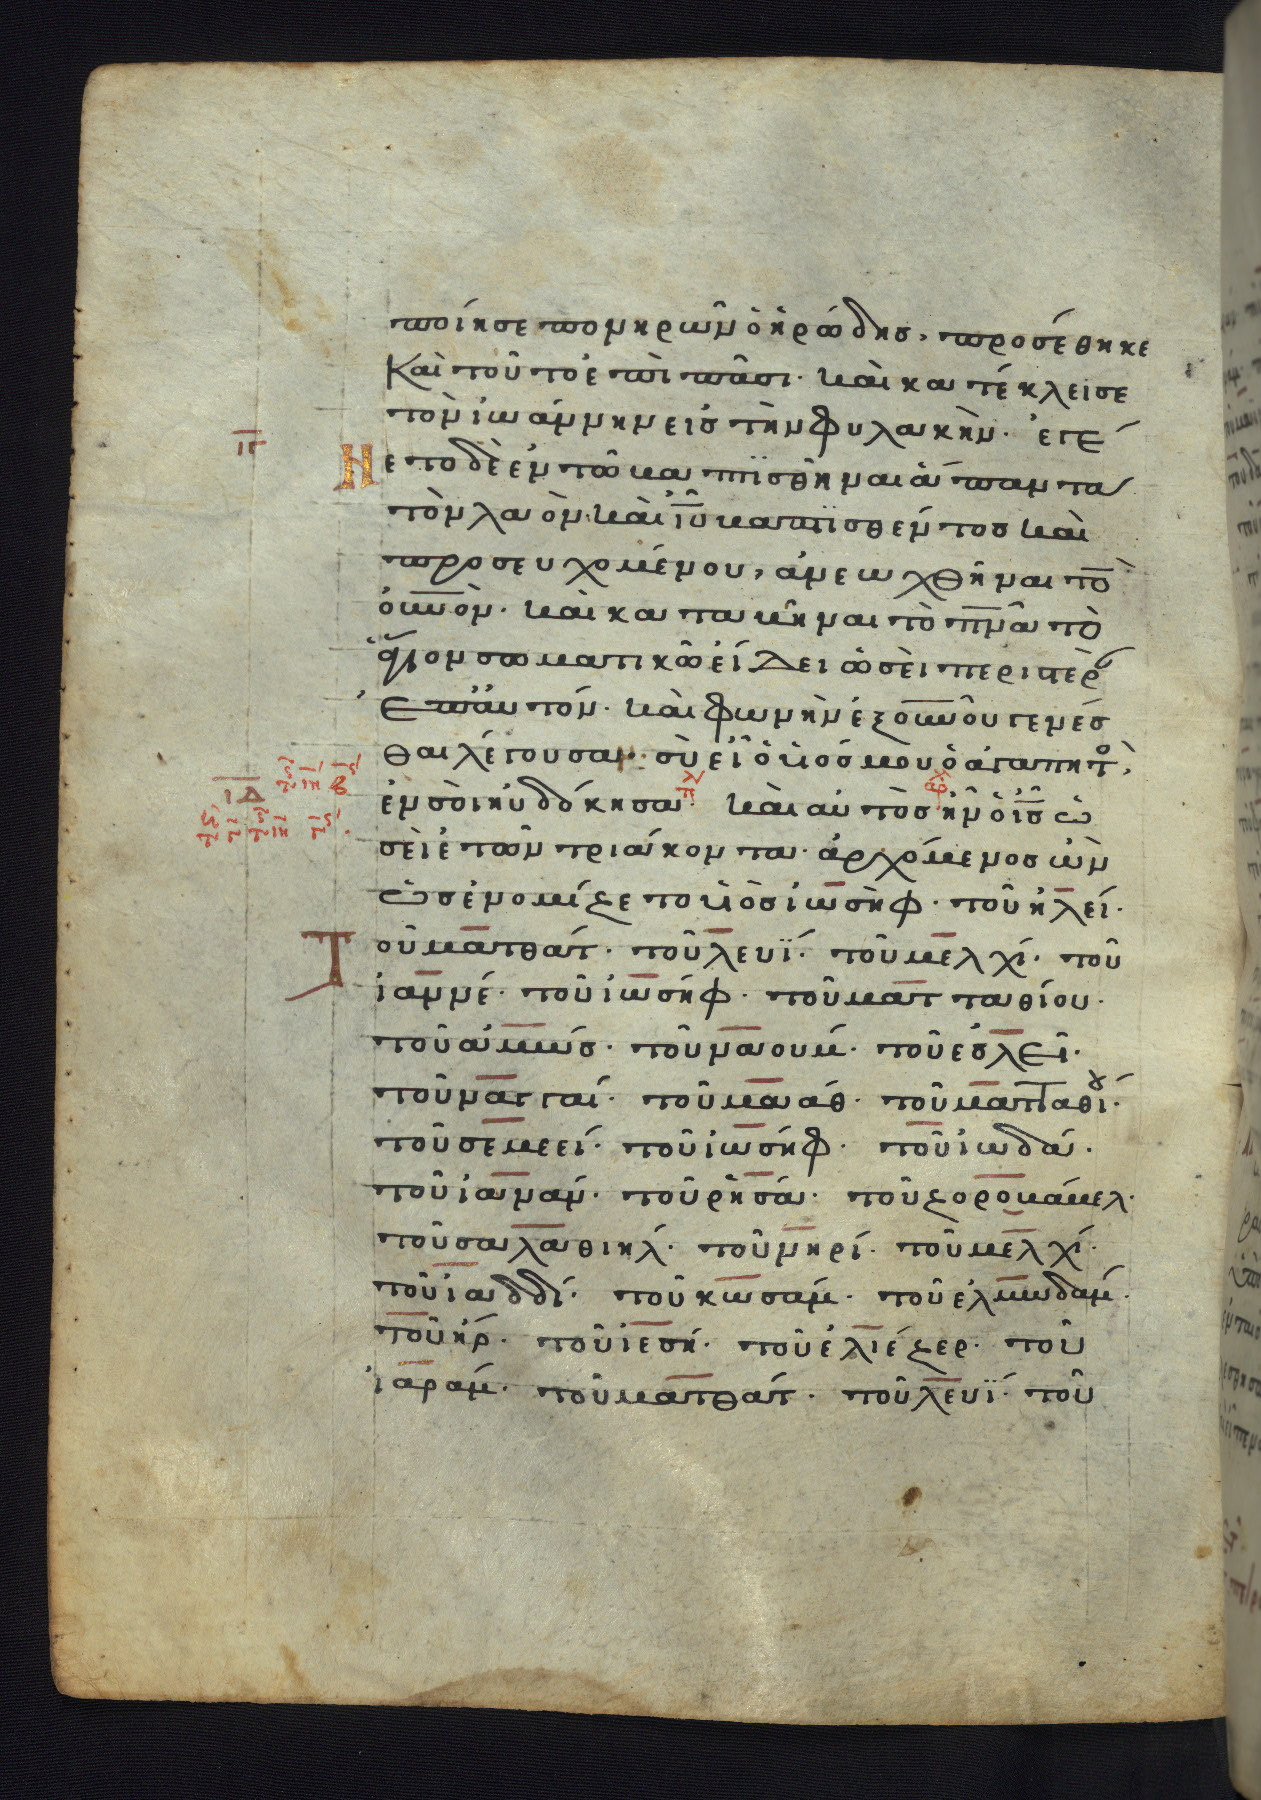 ποίησε πονηρῶν ὁ ἡρώδης, προσέθηκε
Καὶ τοῦτο ἐπὶ πᾶσι· καὶ κατέκλεισε
τὸν ἰωάννην εἰς τὴν φυλακήν· ἐγέ
ΙΓ
Νετο δὲ ἐν τῶ βαπτϊσθῆναι ἅπαντα
τὸν λαὸν· καὶ ἰ̅υ̅ βαπτϊσθέντος καὶ
προσευχομένου, ἀνεωχθῆναι τὸ
ο̅υ̅νὸν· καὶ καταβῆναι τὸ π̅ν̅α̅ τὸ
ἅγιον σωματικῶ εἴδει ὡσεὶ περιστερ
ἐπ' αὐτόν· καὶ φωνὴν ἐξ ο̅υ̅νοῦ γενέσ
θαι λέγουσαν· σὺ εἶ ὁ υ̅ς μου ὁ ἀγαπητ,
ΙΔ
ἐν σοὶ ηὐδόκησα· καὶ αὐτὸς ἦν ὁ ι̅ς̅ ὡ
σεὶ ἐτῶν τριάκοντα· ἀρχόμενος ὢν
ὡς ἐνομίζετο υ̅ὸς ἰωσὴφ· τοῦ ἡλεί·
Τοῦ ματθάτ· τοῦ λευΐ· τοῦ μελχί· τοῦ
ἰαννέ· τοῦ ἰωσήφ· τοῦ ματταθίου·
τοῦ ἀμώς· τοῦ ναούμ· τοῦ ἐσλεῖ·
τοῦ ναγγαί· τοῦ μαάθ· τοῦ ματταθίου·
τοῦ σεμεεί· τοῦ ἰωσήφ· τοῦ ἰωδά·
τοῦ ἰανάν· τοῦ ῥησά· τοῦ ζοροβάβελ·
τοῦ σαλαθιήλ· τοῦ νηρί· τοῦ μελχί·
τοῦ ἰαδδί· τοῦ κωσάμ· τοῦ ἐλμωδάμ·
τοῦ ἤρ· τοῦ ἰεσή· τοῦ ἐλιέζερ· τοῦ
ἰαράμ· τοῦ ματθάτ· τοῦ λευΐ· τοῦ